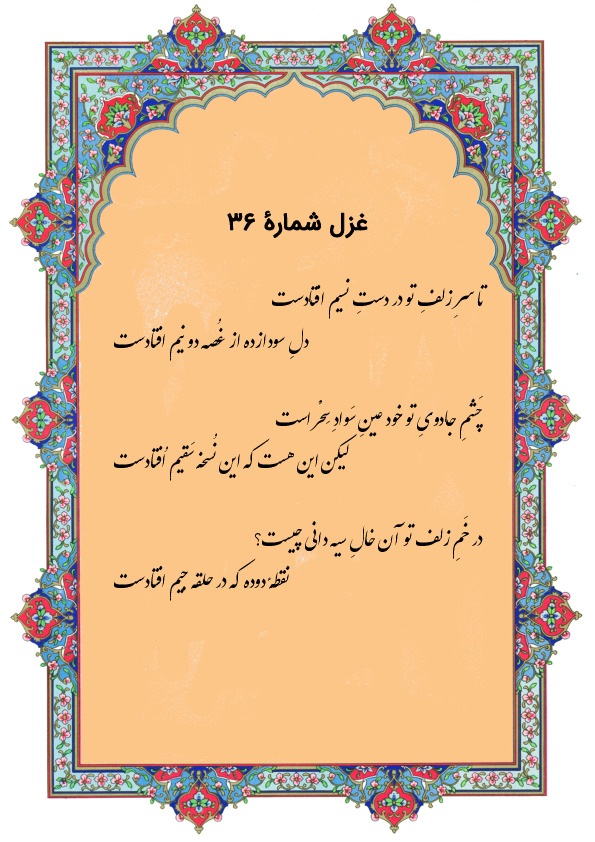 غزل شمارهٔ ۳۶
تا سرِ زلفِ تو در دستِ نسیم افتادست
دلِ سودازده از غُصه دو نیم افتادست
چَشمِ جادویِ تو خود عینِ سَوادِ سِحْر است
لیکن این هست که این نُسخه سَقیم اُفتادست
در خَمِ زلف تو آن خالِ سیه دانی چیست؟
نقطهٔ دوده که در حلقه جیم افتادست